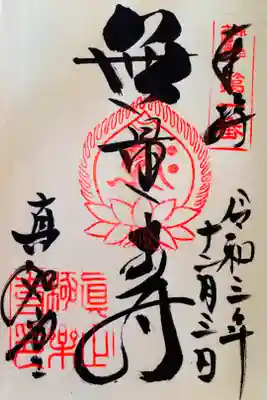 奉拝
令和三年
十二月三日
無量寿
真如堂
眞正
極樂